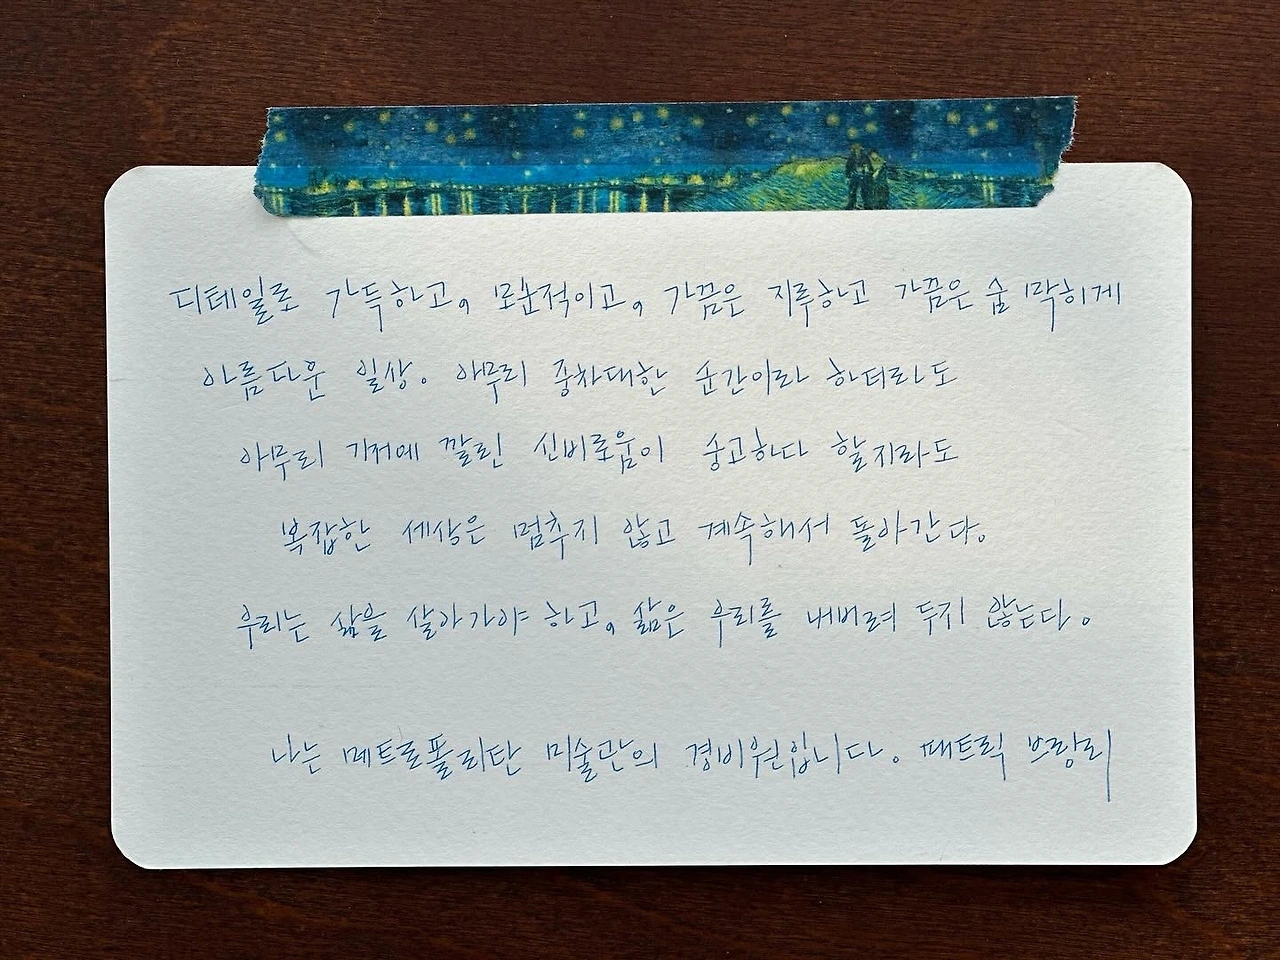 디테일로 가득하고, 모순적이고, 가끔은 지루하고 가끔은 숨 막히게
아름다운 일상. 아무리 중차대한 순간이라 하더라도
아무리 기저에 깔린 신비로움이 숭고하다 할지라도
복잡한 세상은 멈추지 않고 계속해서 돌아간다.
우리는 삶을 살아가야 하고, 삶은 우리를 내버려 두지 않는다.
나는 메트로폴리탄 미술관의 경비원입니다. 패트릭 브링리